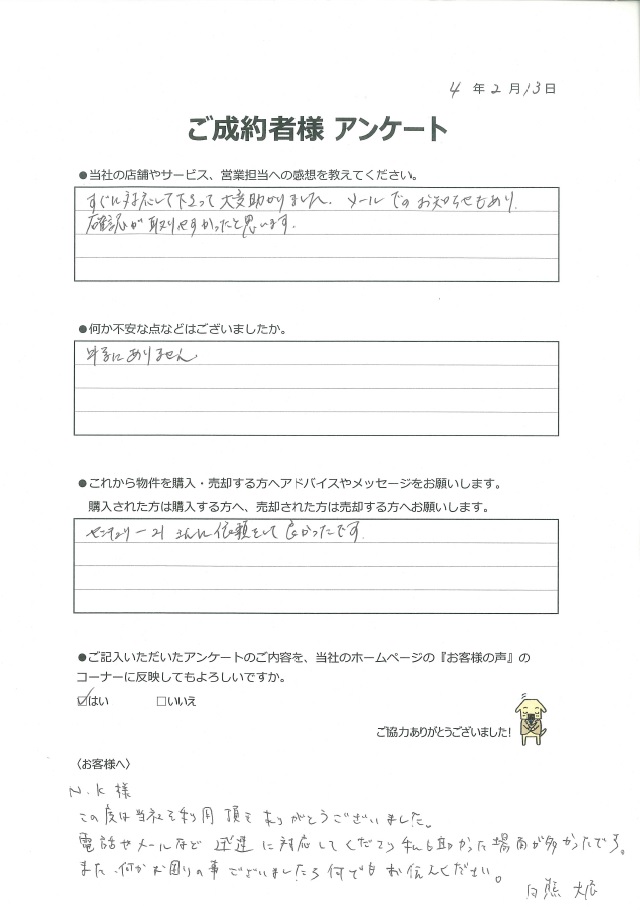 4 年 2 月 13 日
ご成約者様 アンケート
●当社の店舗やサービス、営業担当への感想を教えてください。
すぐに対応して下さって大変助かりました。メールでのお知らせもあり
確認が取りやすかったと思います。
●何か不安な点などはございましたか。
特にありません
●これから物件を購入・売却する方へアドバイスやメッセージをお願いします。
購入された方は購入する方へ、売却された方は売却する方へお願いします。
センチュリー21 さんに依頼をして良かったです
●ご記入いただいたアンケートのご内容を、当社のホームページの『お客様の声』の
コーナーに反映してもよろしいですか。
☑はい □いいえ
ご協力ありがとうございました！
〈お客様へ〉
N.K 様
この度は当社を利用頂きありがとうございました。
電話やメールなど 迅速に対応してくださり私も助かった場面が多かったです。
また、何かお困りの事ございましたら何でもお伝えください。
白熊